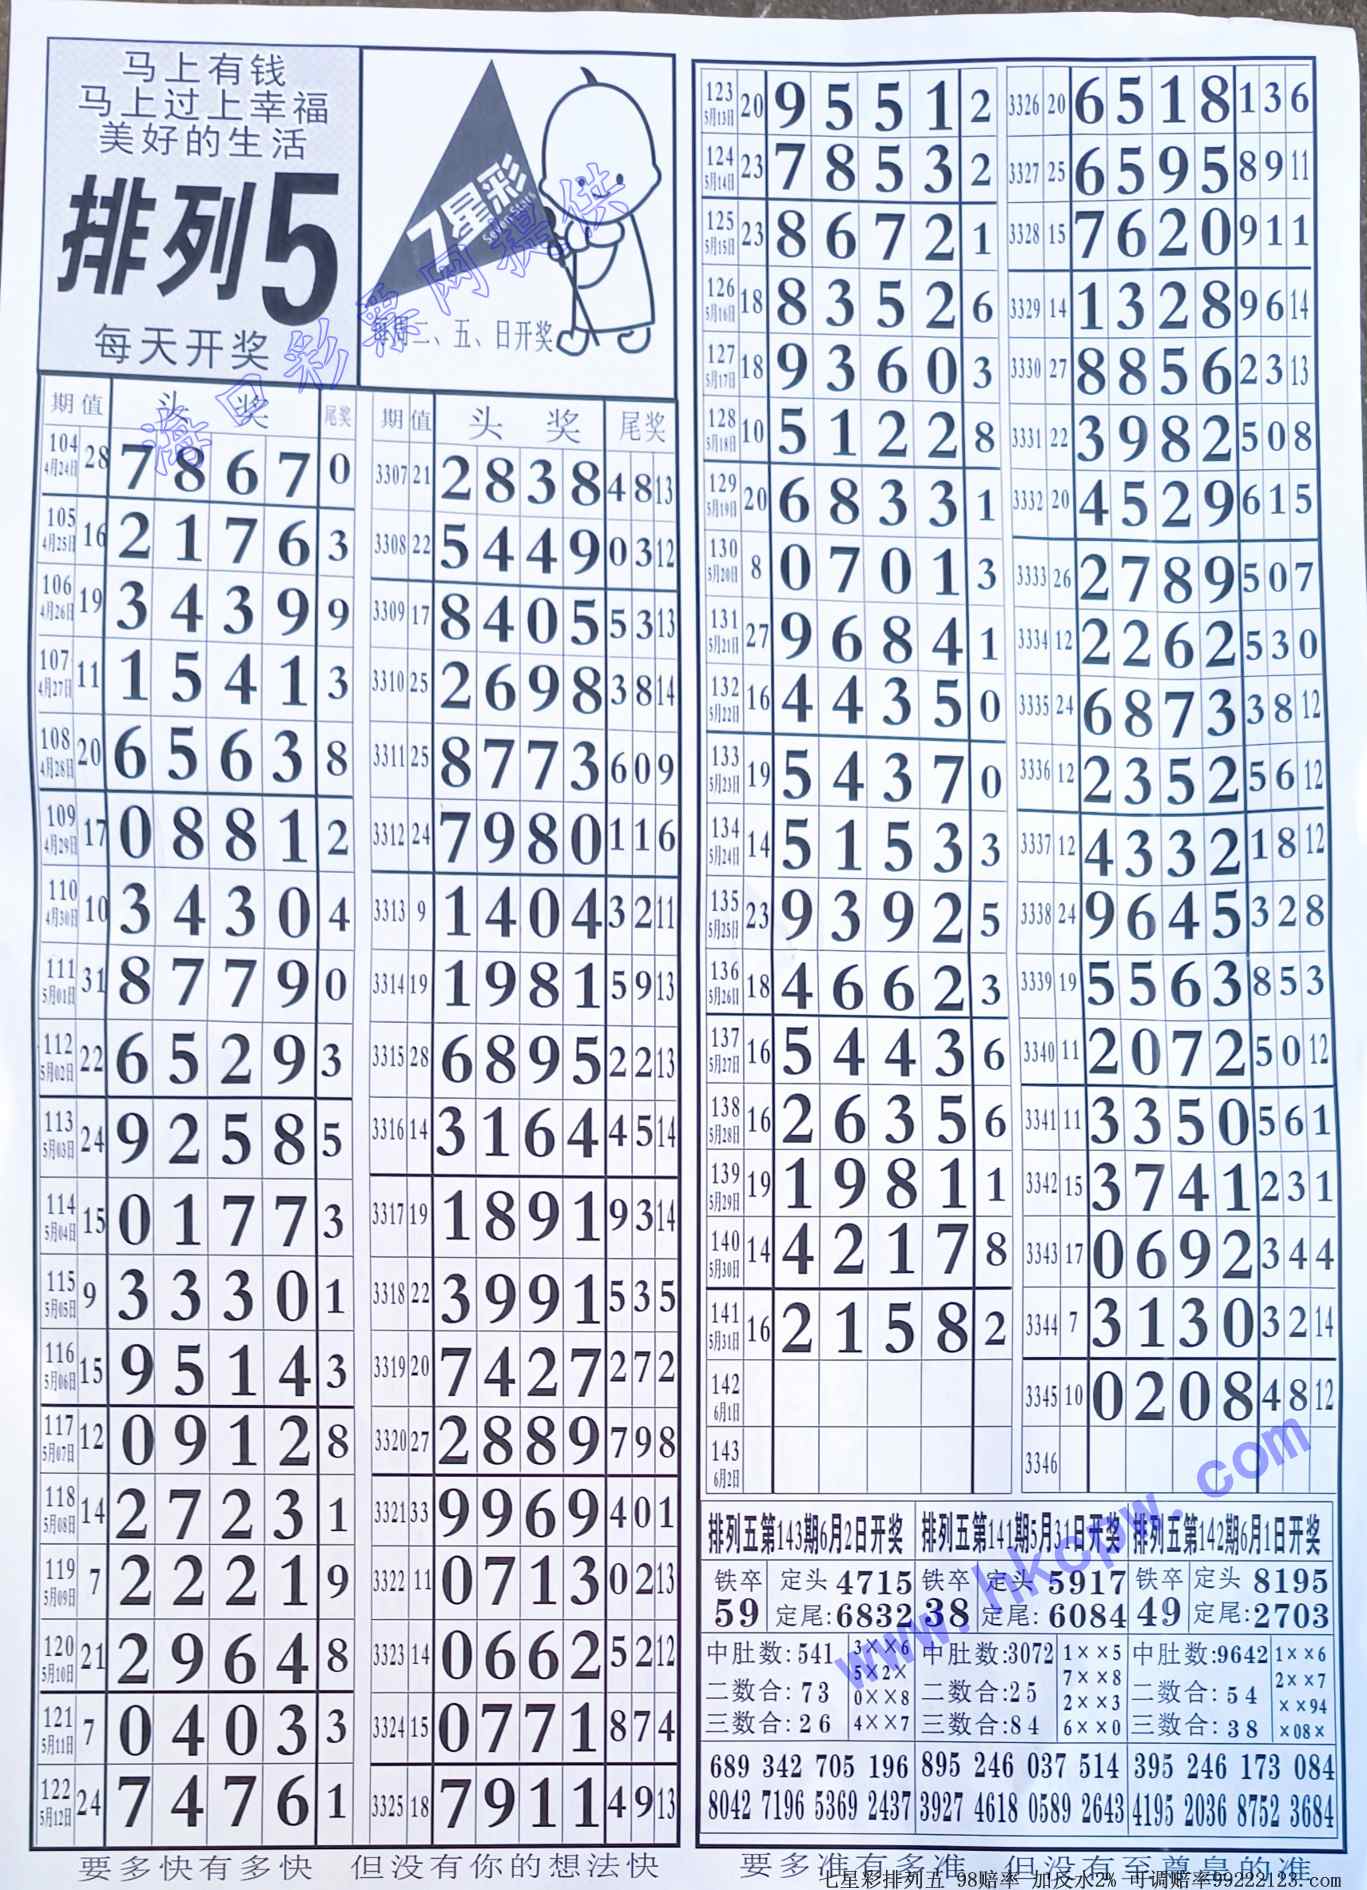 马上有钱
马上过上幸福
美好的生活
排列5
每天开奖
7星彩
每周二、五、日开奖
海口彩票网提供
期 值 头 奖 尾奖
104 4月24日 28 7 8 6 7 0
105 4月25日 16 2 1 7 6 3
106 4月26日 19 3 4 3 9 9
107 4月27日 11 1 5 4 1 3
108 4月28日 20 6 5 6 3 8
109 4月29日 17 0 8 8 1 2
110 4月30日 10 3 4 3 0 4
111 5月01日 31 8 7 7 9 0
112 5月02日 22 6 5 2 9 3
113 5月03日 24 9 2 5 8 5
114 5月04日 15 0 1 7 7 3
115 5月05日 9 3 3 3 0 1
116 5月06日 15 9 5 1 4 3
117 5月07日 12 0 9 1 2 8
118 5月08日 14 2 7 2 3 1
119 5月09日 7 2 2 2 1 9
120 5月10日 21 2 9 6 4 8
121 5月11日 7 0 4 0 3 3
122 5月12日 24 7 4 7 6 1
期 值 头 奖 尾奖
3307 21 2 8 3 8 4 8 13
3308 22 5 4 4 9 0 3 12
3309 17 8 4 0 5 5 3 13
3310 25 2 6 9 8 3 8 14
3311 25 8 7 7 3 6 0 9
3312 24 7 9 8 0 1 1 6
3313 9 1 4 0 4 3 2 11
3314 19 1 9 8 1 5 9 13
3315 28 6 8 9 5 2 2 13
3316 14 3 1 6 4 4 5 14
3317 19 1 8 9 1 9 3 14
3318 22 3 9 9 1 5 3 5
3319 20 7 4 2 7 2 7 2
3320 27 2 8 8 9 7 9 8
3321 33 9 9 6 9 4 0 1
3322 11 0 7 1 3 0 2 13
3323 14 0 6 6 2 5 2 12
3324 15 0 7 7 1 8 7 4
3325 18 7 9 1 1 4 9 13
123 5月13日 20 9 5 5 1 2
124 5月14日 23 7 8 5 3 2
125 5月15日 23 8 6 7 2 1
126 5月16日 18 8 3 5 2 6
127 5月17日 18 9 3 6 0 3
128 5月18日 10 5 1 2 2 8
129 5月19日 20 6 8 3 3 1
130 5月20日 8 0 7 0 1 3
131 5月21日 27 9 6 8 4 1
132 5月22日 16 4 4 3 5 0
133 5月23日 19 5 4 3 7 0
134 5月24日 14 5 1 5 3 3
135 5月25日 23 9 3 9 2 5
136 5月26日 18 4 6 6 2 3
137 5月27日 16 5 4 4 3 6
138 5月28日 16 2 6 3 5 6
139 5月29日 19 1 9 8 1 1
140 5月30日 14 4 2 1 7 8
141 5月31日 16 2 1 5 8 2
142 6月1日
143 6月2日
3326 20 6 5 1 8 1 3 6
3327 25 6 5 9 5 8 9 11
3328 15 7 6 2 0 9 1 1
3329 14 1 3 2 8 9 6 14
3330 27 8 8 5 6 2 3 13
3331 22 3 9 8 2 5 0 8
3332 20 4 5 2 9 6 1 5
3333 26 2 7 8 9 5 0 7
3334 12 2 2 6 2 5 3 0
3335 24 6 8 7 3 3 8 12
3336 12 2 3 5 2 5 6 12
3337 12 4 3 3 2 1 8 12
3338 24 9 6 4 5 3 2 8
3339 19 5 5 6 3 8 5 3
3340 11 2 0 7 2 5 0 12
3341 11 3 3 5 0 5 6 1
3342 15 3 7 4 1 2 3 1
3343 17 0 6 9 2 3 4 4
3344 7 3 1 3 0 3 2 14
3345 10 0 2 0 8 4 8 12
3346
排列五第143期6月2日开奖
铁卒 定头 4715
59 定尾:6832
中肚数:541 3××6
5×2×
二数合:73 0××8
三数合:26 4××7
689 342 705 196
8042 7196 5369 2437
排列五第141期5月31日开奖
铁卒 定头 5917
38 定尾:6084
中肚数:3072 1××5
7××8
二数合:25 2××3
三数合:84 6××0
895 246 037 514
3927 4618 0589 2643
排列五第142期6月1日开奖
铁卒 定头 8195
49 定尾:2703
中肚数:9642 1××6
2××7
二数合:54 ××94
三数合:38 ×08×
395 246 173 084
4195 2036 8752 3684
www.hkcpw.com
要多快有多快 但没有你的想法快
要多准有多准 但没有至尊皇的准
七星彩排列五 98赔率 加反水2% 可调赔率99222123.com